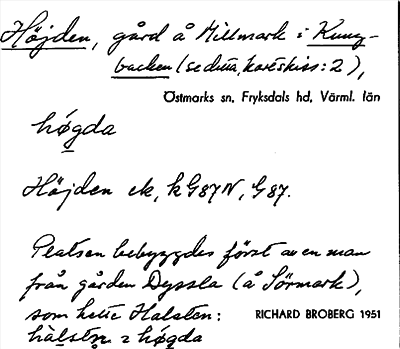 Höjden, gård å Millmark i Kung-
backen (se d:a, kartskiss: 2),
Östmarks sn, Fryksdals hd, Värml. län
høgda
Höjden ek, k G87N, G87.
Platsen bebyggdes först av en man
från gården Dyssla (å Sörmark),
som hette Halsten:
RICHARD BROBERG 1951
høgda